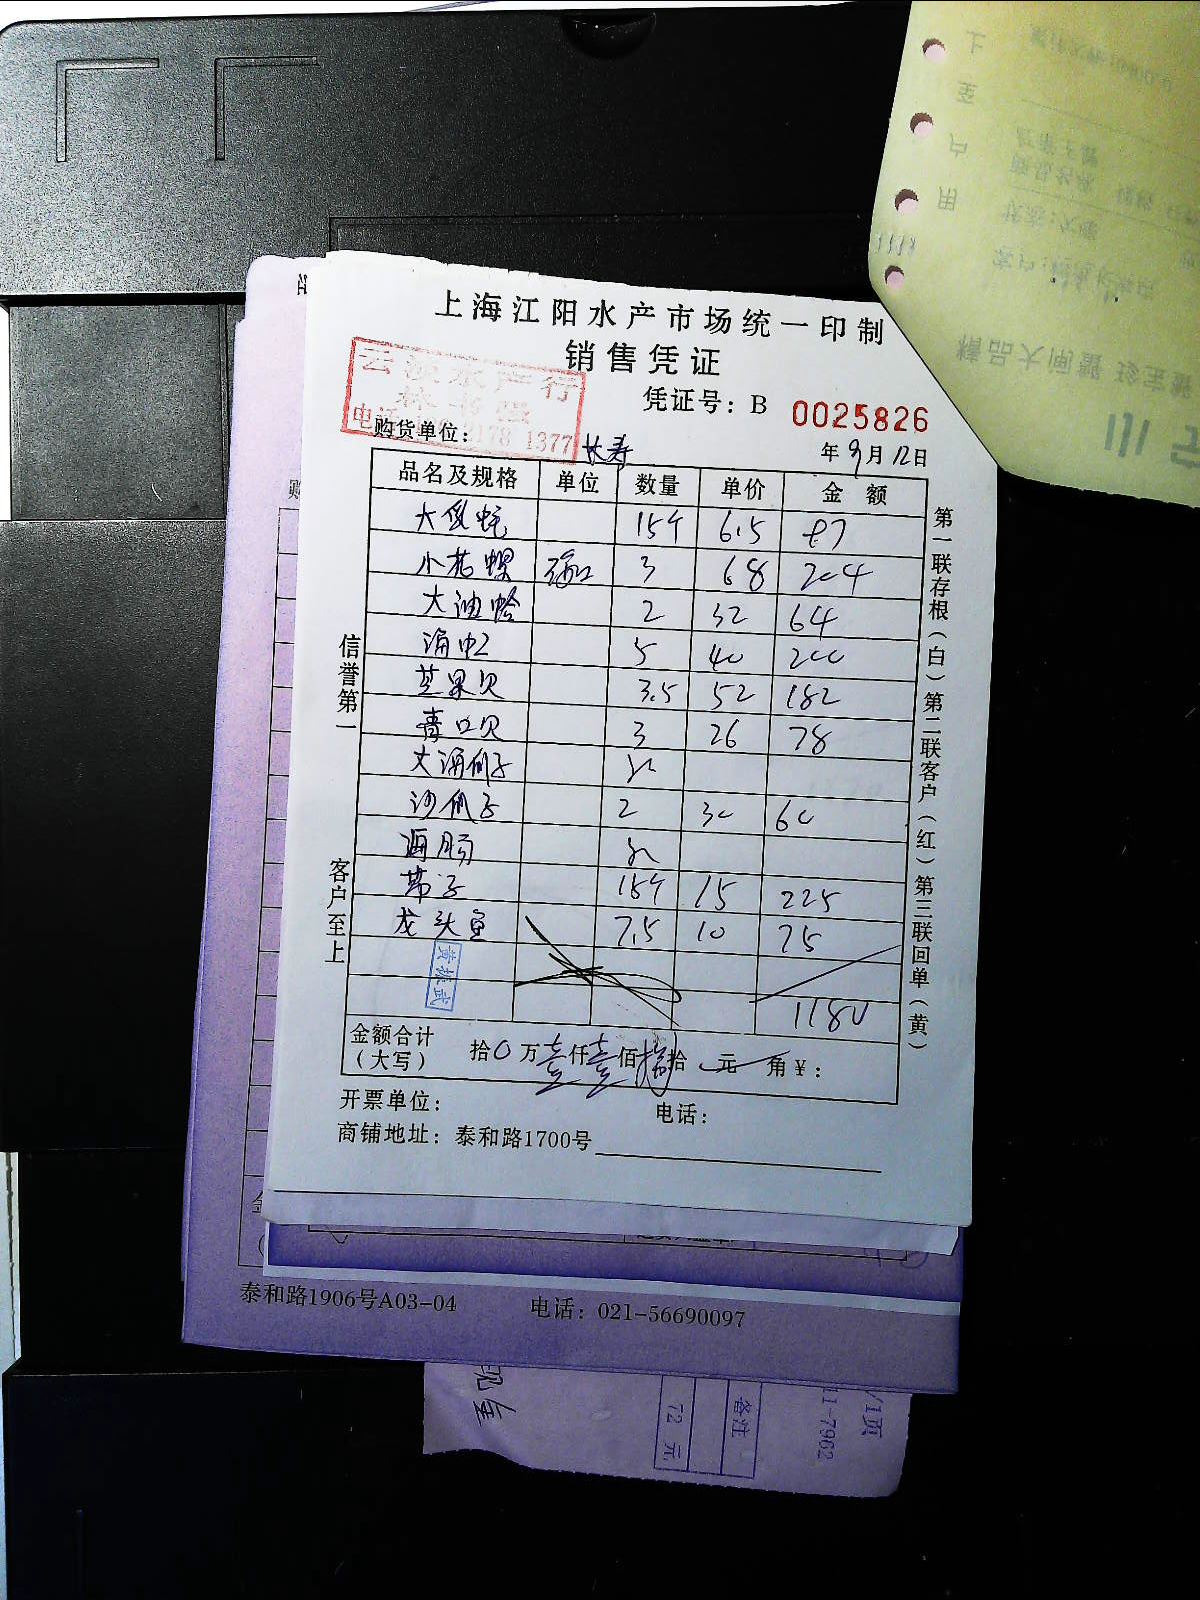 上海江阳水产市场统一印制
销售凭证
凭证号：B 0025826
水产行
电话 2178 1377
购货单位：长寿 年9月12日
品名及规格 单位 数量 单价 金额
15个 6.5 97
小花螺 3 68 204
大油蛤 2 32 64
5 40 200
芒果贝 3.5 52 182
青口贝 3 26 78
大海瓜子
沙瓜子 2 30 60
海肠
带子 15个 15 225
龙头鱼 7.5 10 75
黄振武
1180
金额合计（大写） 拾0万壹仟壹佰捌拾 元 角¥：
开票单位： 电话：
商铺地址：泰和路1700号
信誉第一 客户至上
第一联存根（白）第二联客户（红）第三联回单（黄）
泰和路1906号A03-04 电话：021-56690097
备注
72 元
11-7962
/1页
精品大闸蟹